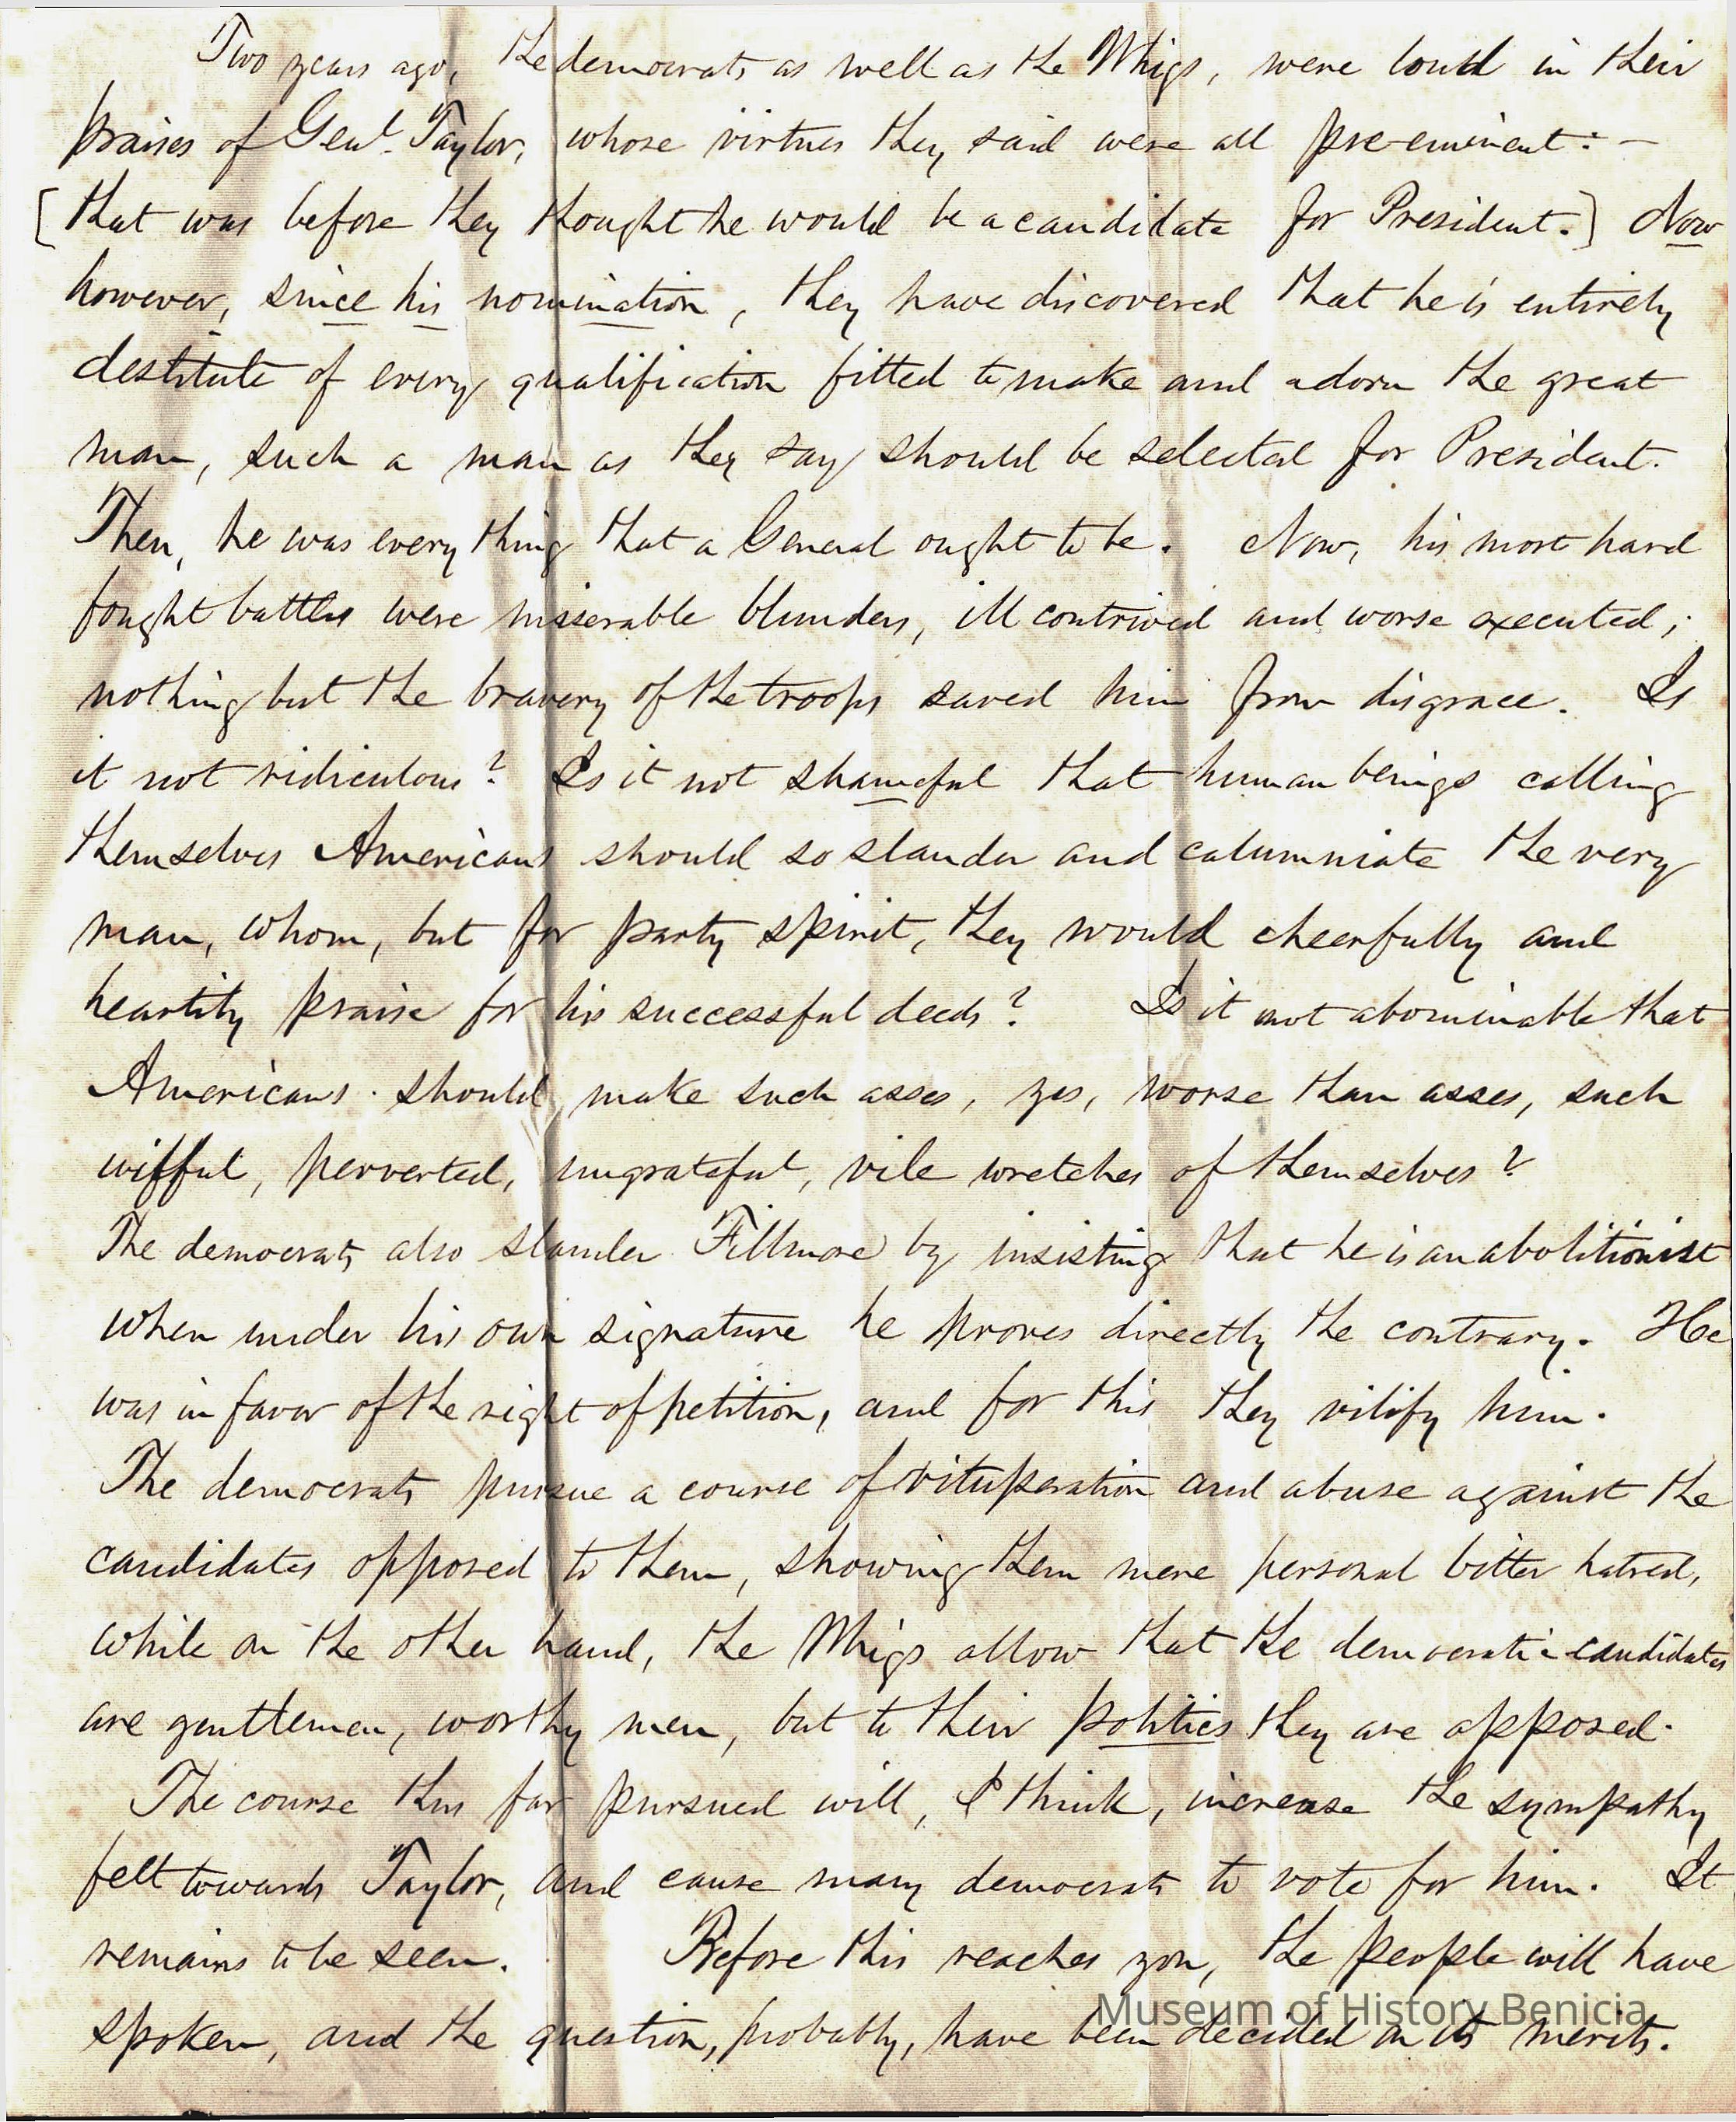 Two years ago, the democrats as well as the Whigs, were loud in their
praises of Genl. Taylor, whose virtues they said were all pre-eminent: -
[that was before they thought he would be a candidate for President.] Now
however, since his nomination, they have discovered that he is entirely
destitute of every qualification fitted to make and adorn the great
man, such a man as they say should be selected for President.
Then, he was every thing that a General ought to be. Now, his most hard
fought battles were misserable blunders, ill contrived and worse executed;
nothing but the bravery of the troops saved him from disgrace. Is
it not ridiculous? Is it not shameful that human beings calling
themselves Americans should so slander and calumniate the very
man, whom, but for party spirit, they would cheerfully and
heartily praise for his successful deeds? Is it not abominable that
Americans should, make such asses, yes, worse than asses, such
wilful, perverted, ungrateful, vile wretches of themselves?
The democrats also slander Fillmore by insisting that he is an abolitionist
when under his own signature he proves directly the contrary. He
was in favor of the right of petition, and for this they vilify him.
The democrats pursue a course of vituperation and abuse against the
candidates opposed to them, showing them mere personal bitter hatred,
while on the other hand, the Whigs allow that the democratic candidates
are gentlemen, worthy men, but to their politics they are opposed.
The course thus far pursued will, I think, increase the sympathy
felt towards Taylor, and cause many democrats to vote for him. It
remains to be seen. Before this reaches you, the people will have
spoken, and the question, probably, have been decided on its merits.
Museum of History Benicia